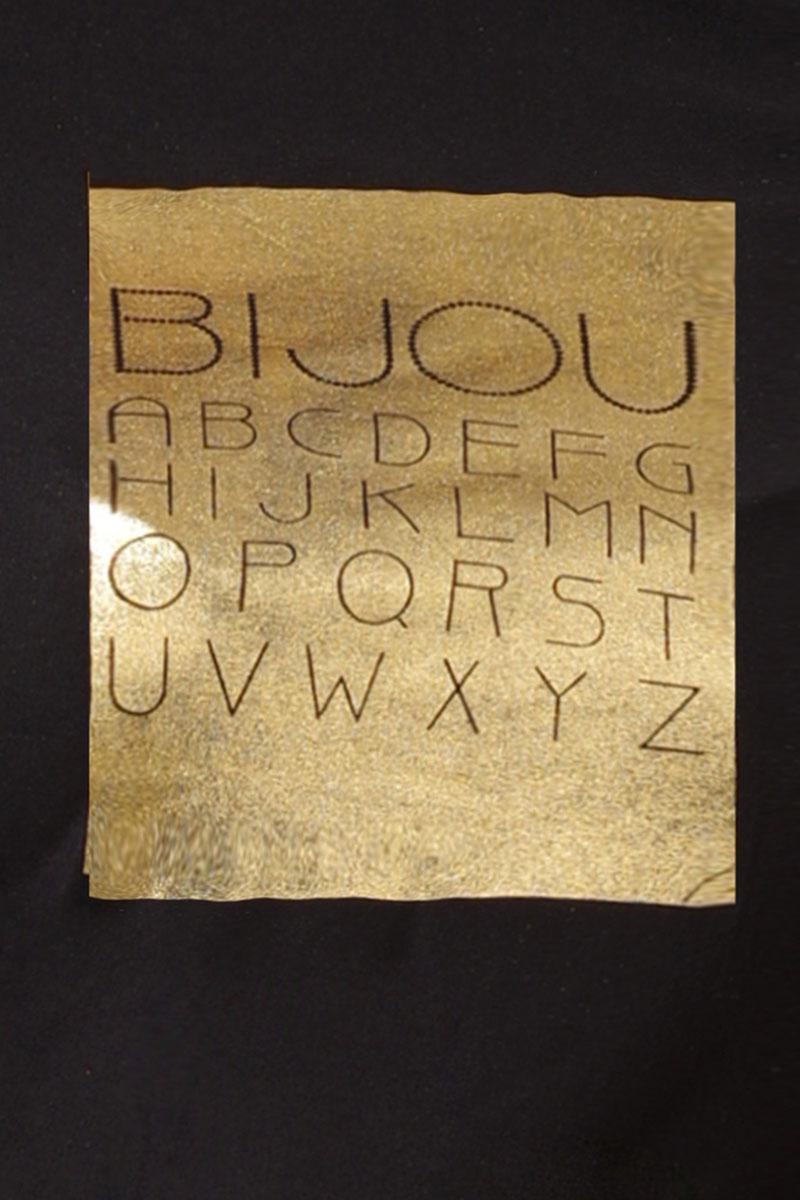 BIJOU
ABCDEFG
HIJKLMN
OPQRST
UVWXYZ